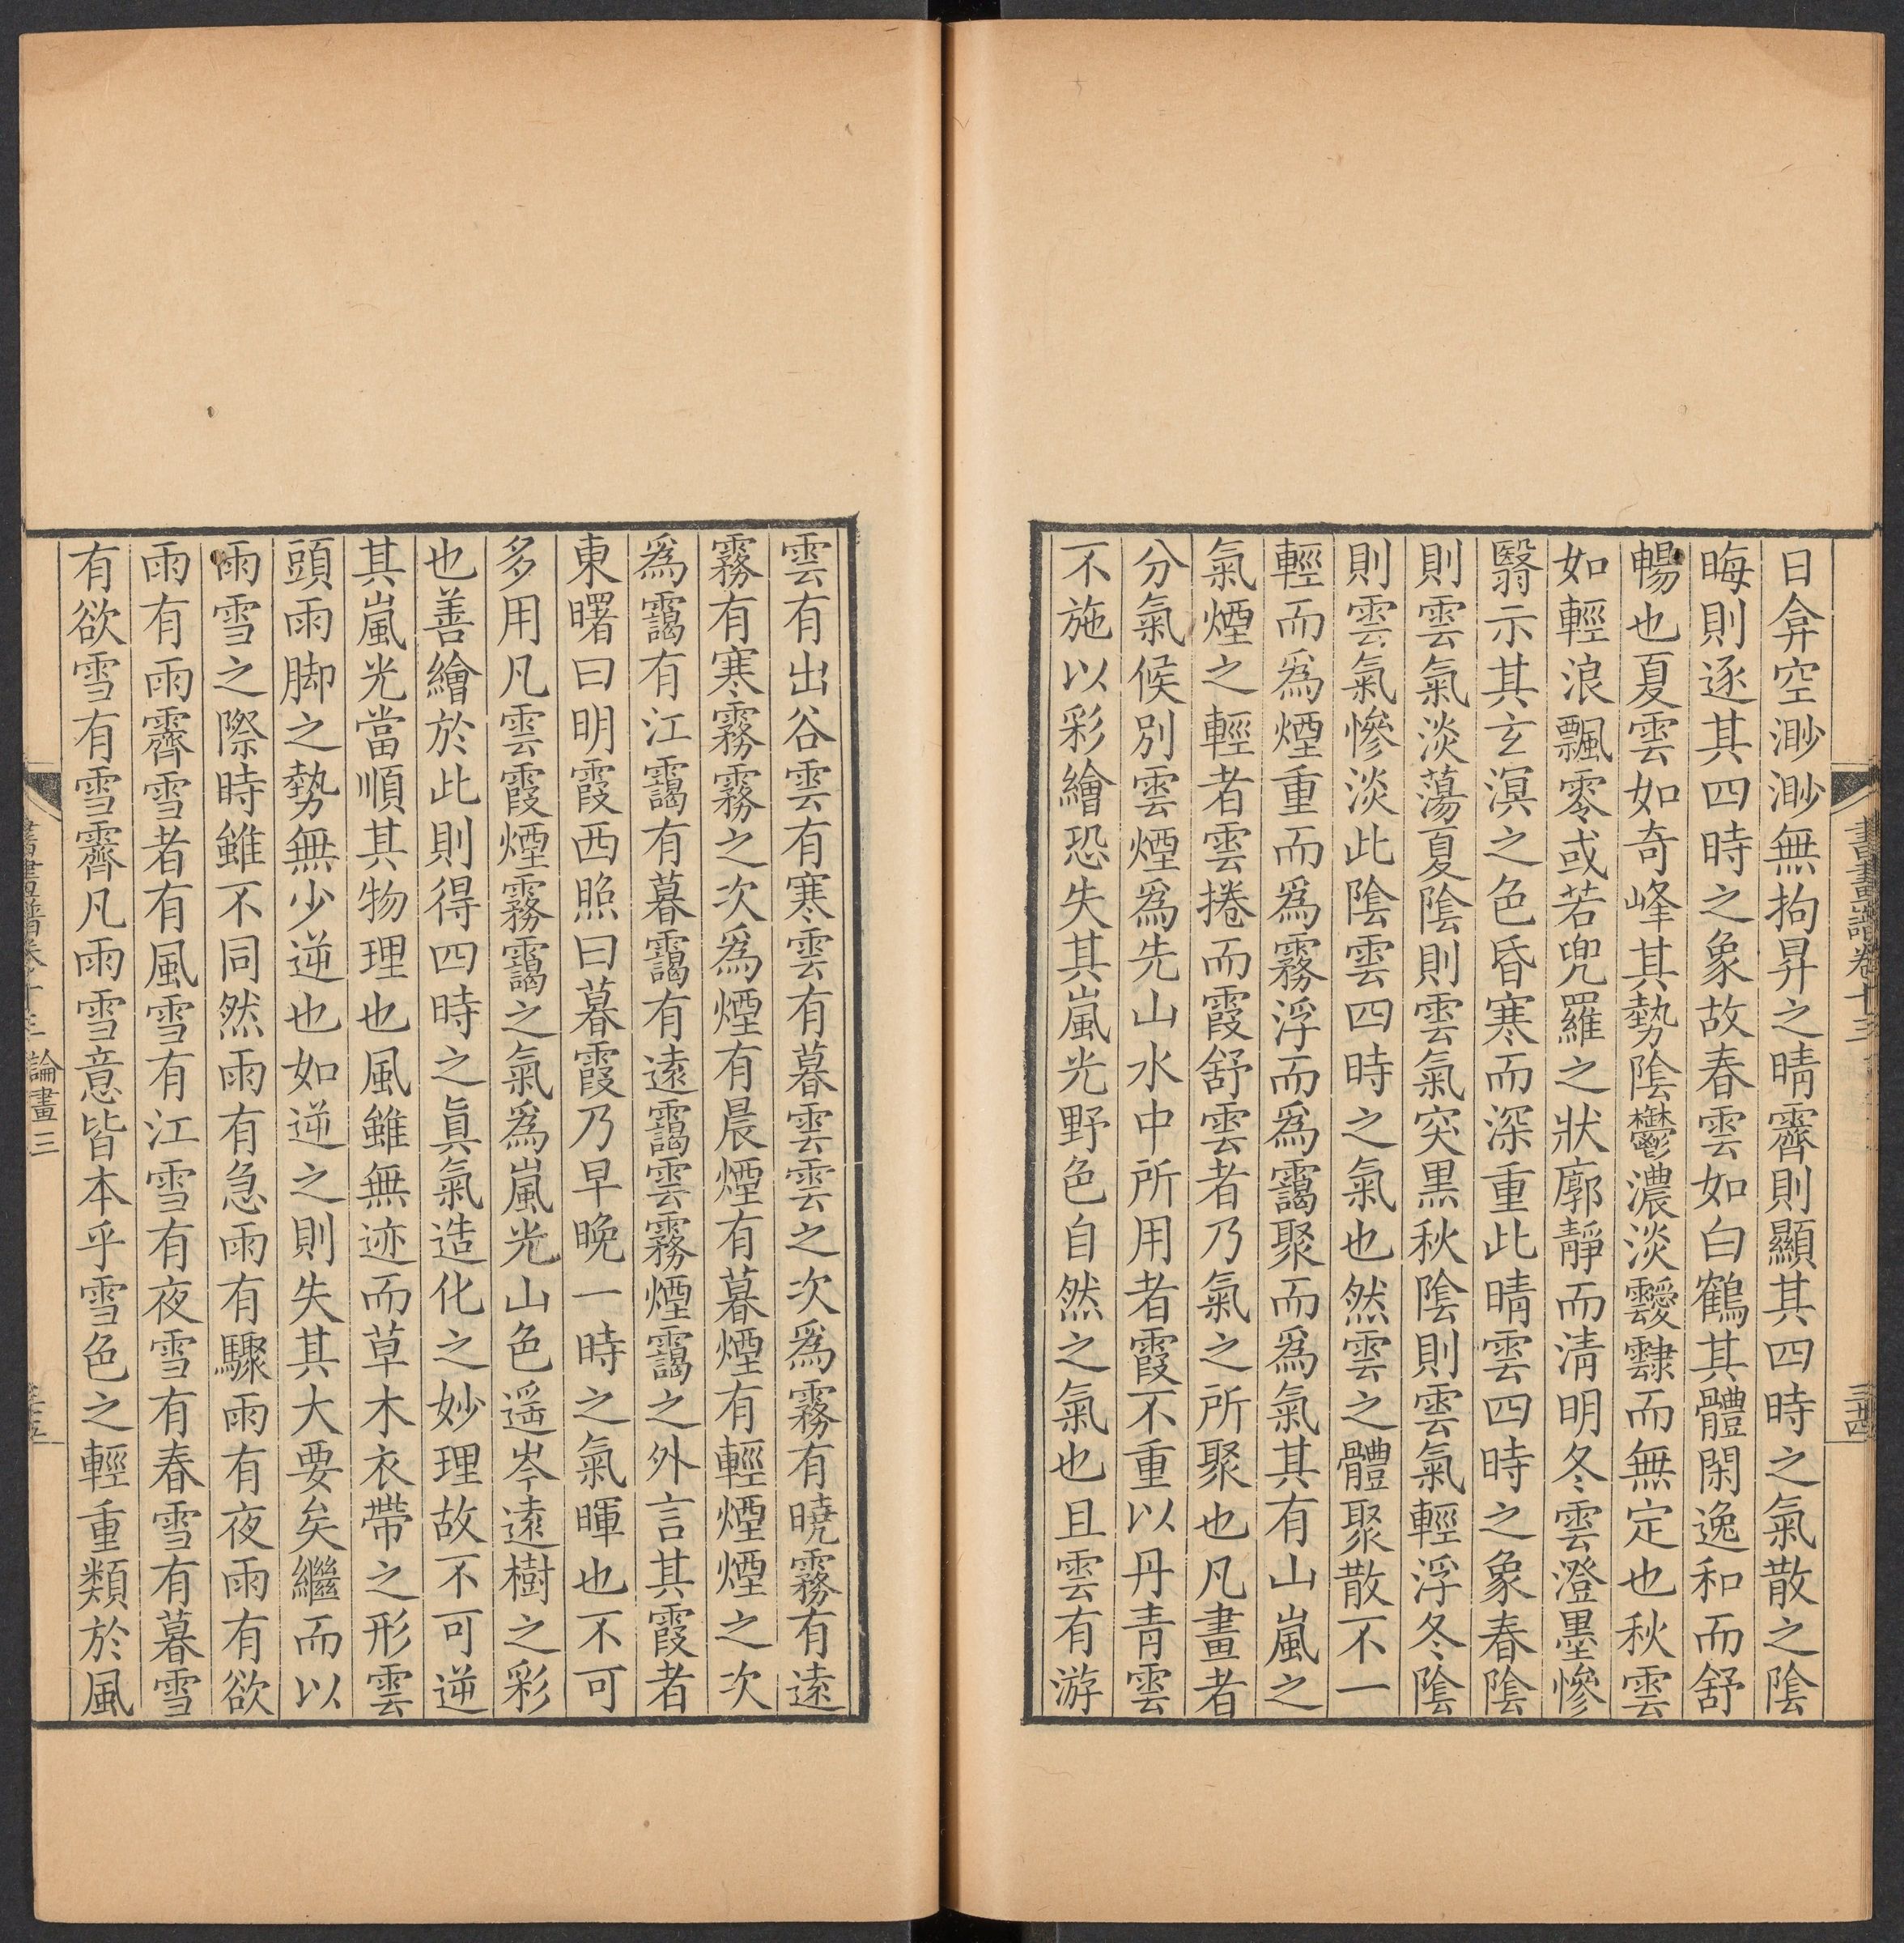 日弇空渺渺無拘昇之晴霽則顯其四時之氣散之陰
晦則逐其四時之象故春雲如白鶴其體閑逸和而舒
暢也夏雲如奇峰其勢陰鬱濃淡靉靆而無定也秋雲
如輕浪飄零或若兜羅之狀廓靜而清明冬雲澄墨慘
翳示其玄溟之色昏寒而深重此晴雲四時之象春陰
則雲氣淡蕩夏陰則雲氣突黑秋陰則雲氣輕浮冬陰
則雲氣慘淡此陰雲四時之氣也然雲之體聚散不一
輕而爲煙重而爲霧浮而爲靄聚而爲氣其有山嵐之
氣煙之輕者雲捲而霞舒雲者乃氣之所聚也凡畫者
分氣候別雲煙爲先山水中所用者霞不重以丹青雲
不施以彩繪恐失其嵐光野色自然之氣也且雲有游
書畫譜卷十三
三十四
雲有出谷雲有寒雲有暮雲雲之次爲霧有曉霧有遠
霧有寒霧霧之次爲煙有晨煙有暮煙有輕煙煙之次
爲靄有江靄有暮靄有遠靄雲霧煙靄之外言其霞者
東曙曰明霞西照曰暮霞乃早晚一時之氣暉也不可
多用凡雲霞煙霧靄之氣爲嵐光山色遥岑遠樹之彩
也善繪於此則得四時之眞氣造化之妙理故不可逆
其嵐光當順其物理也風雖無迹而草木衣帶之形雲
頭雨脚之勢無少逆也如逆之則失其大要矣繼而以
雨雪之際時雖不同然雨有急雨有驟雨有夜雨有欲
雨有雨霽雪者有風雪有江雪有夜雪有春雪有暮雪
有欲雪有雪霽凡雨雪意皆本乎雪色之輕重類於風
書畫譜卷十三 論畫三